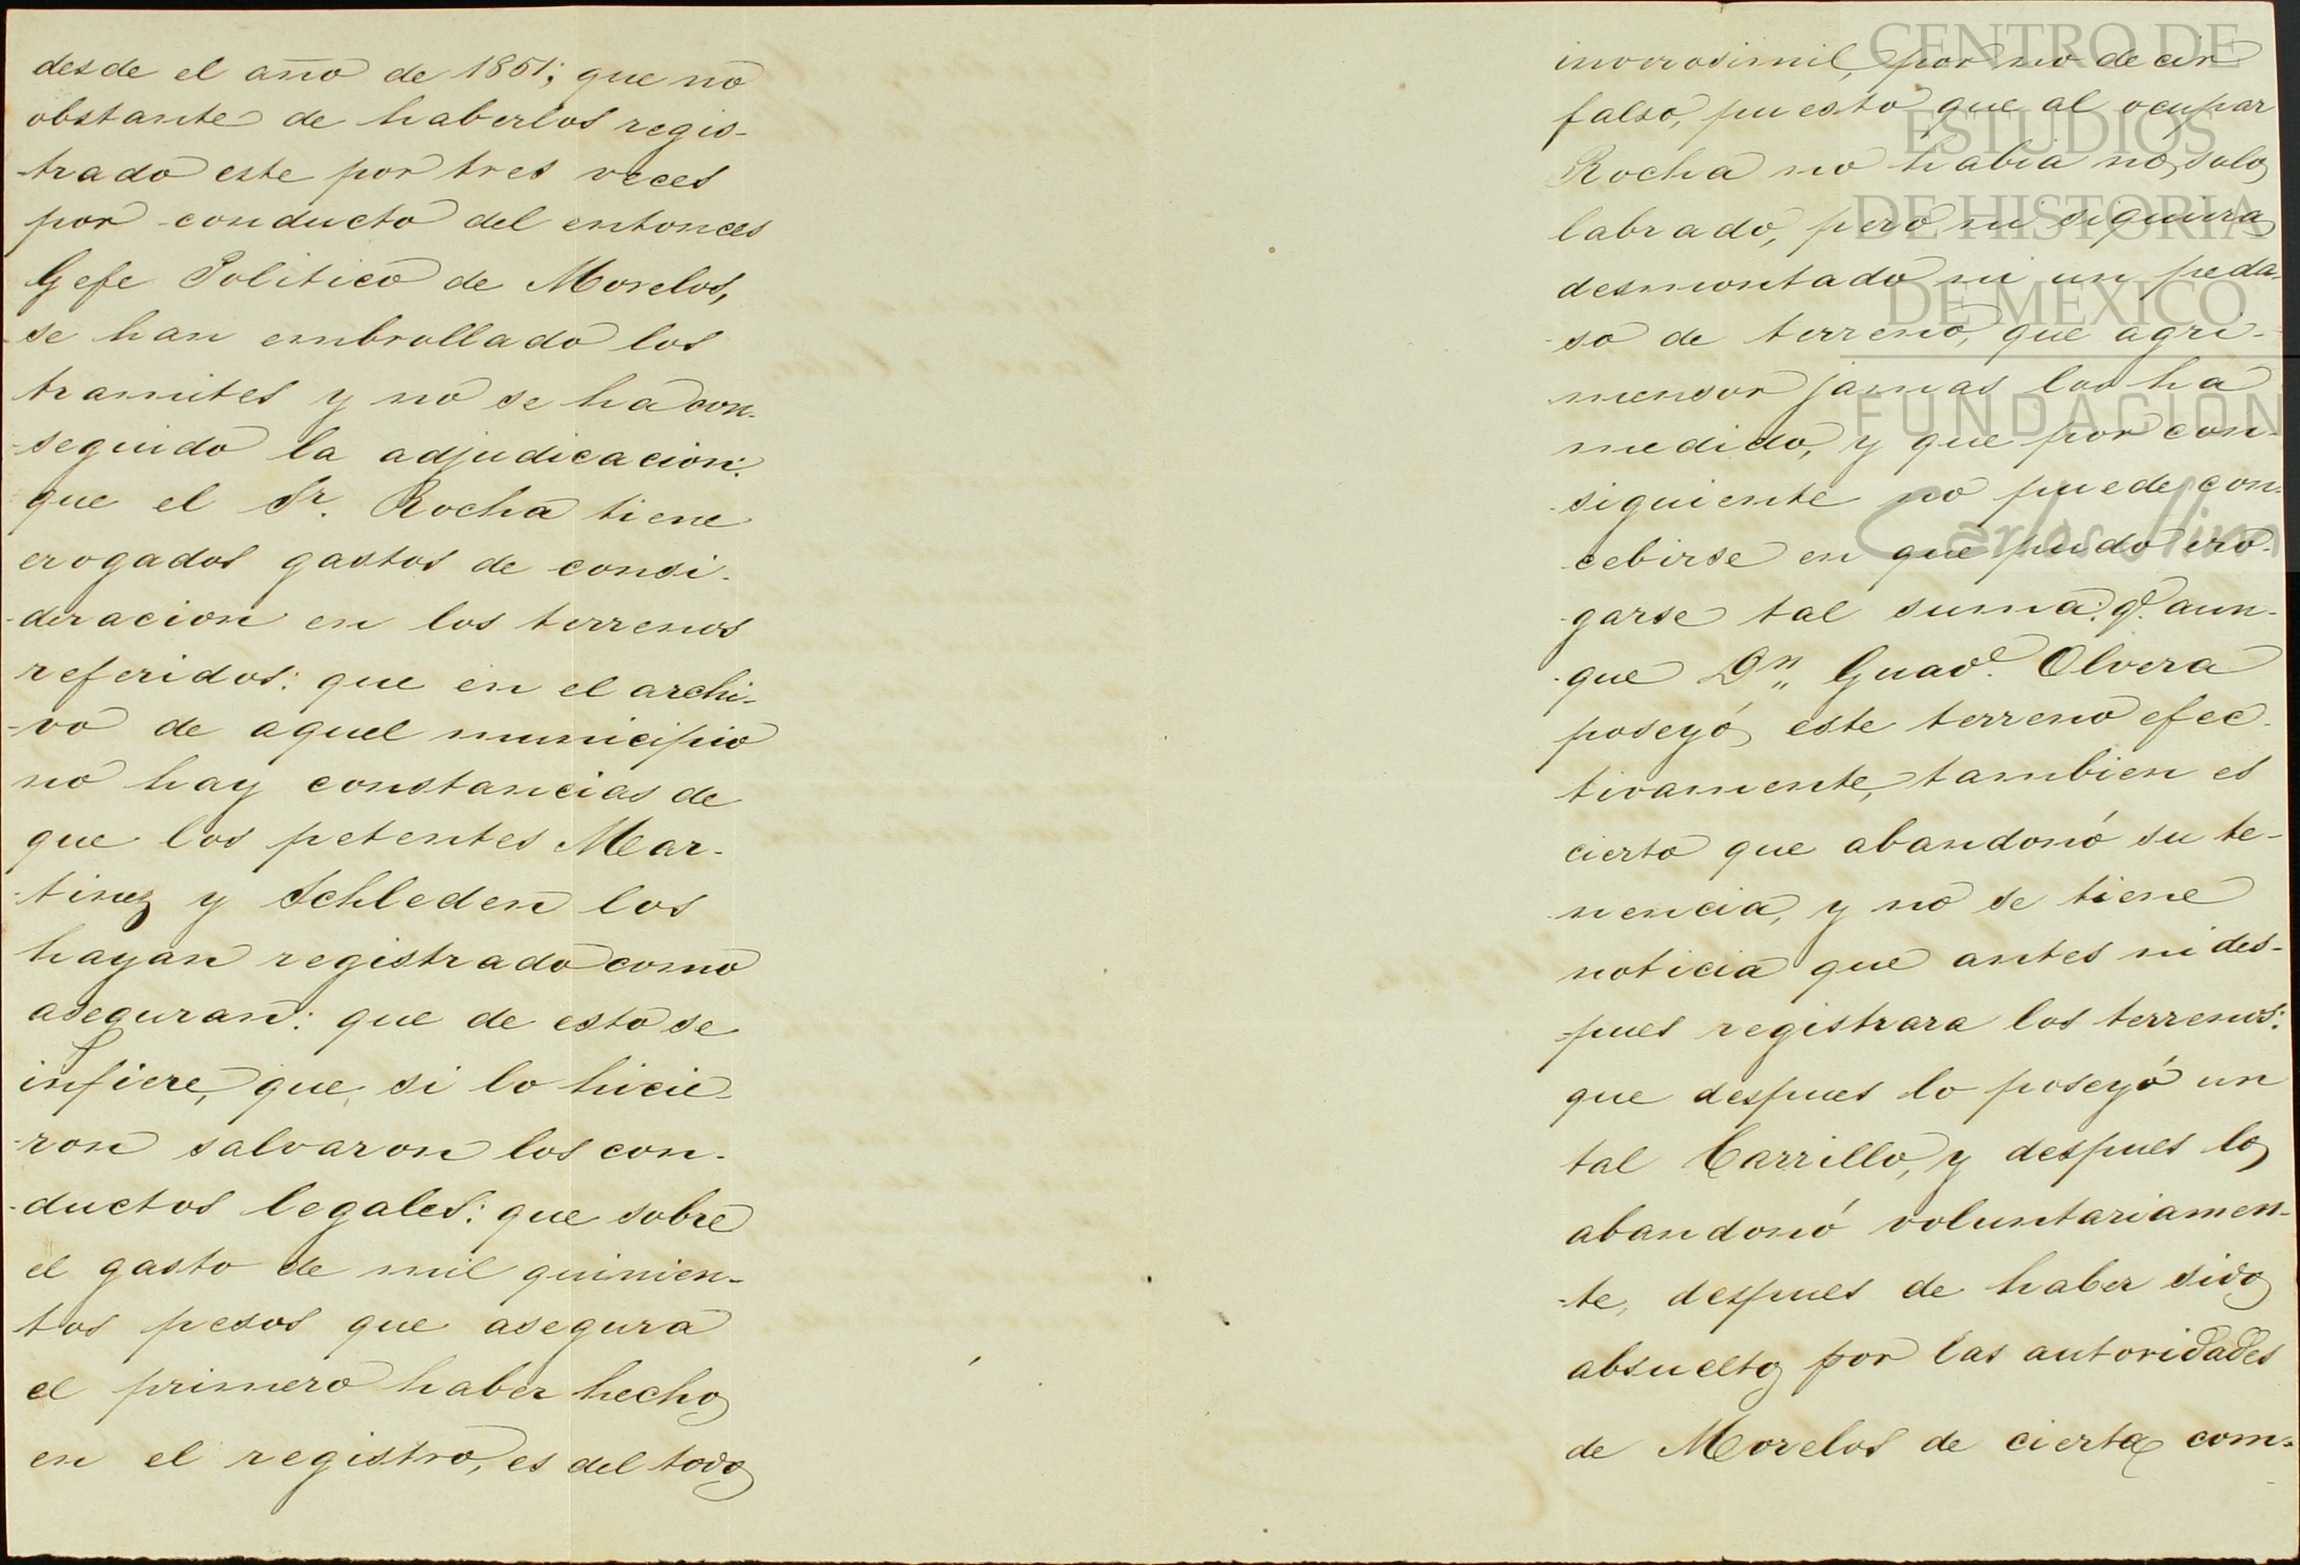 desde el año de 1851; que no
obstante de haberlos regis-
-trado este por tres veces
por conducto del entonces
Gefe Politico de Morelos,
se han embrollado los
tramites y no se ha con-
-seguido la adjudicacion:
que el Sr. Rocha tiene
erogados gastos de consi-
-deracion en los terrenos
referidos: que en el archi-
-vo de aquel municipio
no hay constancias de
que los petentes Mar-
-tinez y Schleden los
hayan registrado como
aseguran: que de esto se
infiere, que, si lo hicie-
-ron salvaron los con-
-ductos legales: que sobre
el gasto de mil quinien-
tos pesos que asegura
el primero haber hecho
en el registro, es del todo
inverosimil, por no decir
falso, puesto que al ocupar
Rocha no habia no solo
labrado, pero ni siquiera
desmontado ni un peda-
-so de terreno, que agri-
-mensor jamas los ha
medido, y que por con-
-siguiente no puede con-
-cebirse en que pudo ero-
-garse tal suma: q.e aun-
-que Dn,, Guad.e Olvera
poseyó este terreno efec-
tivamente, tambien es
cierto que abandonó su te-
nencia, y no se tiene
noticia que antes ni des-
-pues registrara los terrenos:
que despues lo poseyó un
tal Carrillo, y despues lo
abandonó voluntariamen-
-te, despues de haber sido
absuelto por las autoridades
de Morelos de cierta com-
CENTRO DE
ESTUDIOS
DE HISTORIA
DE MEXICO
FUNDACIÓN
Carlos Slim